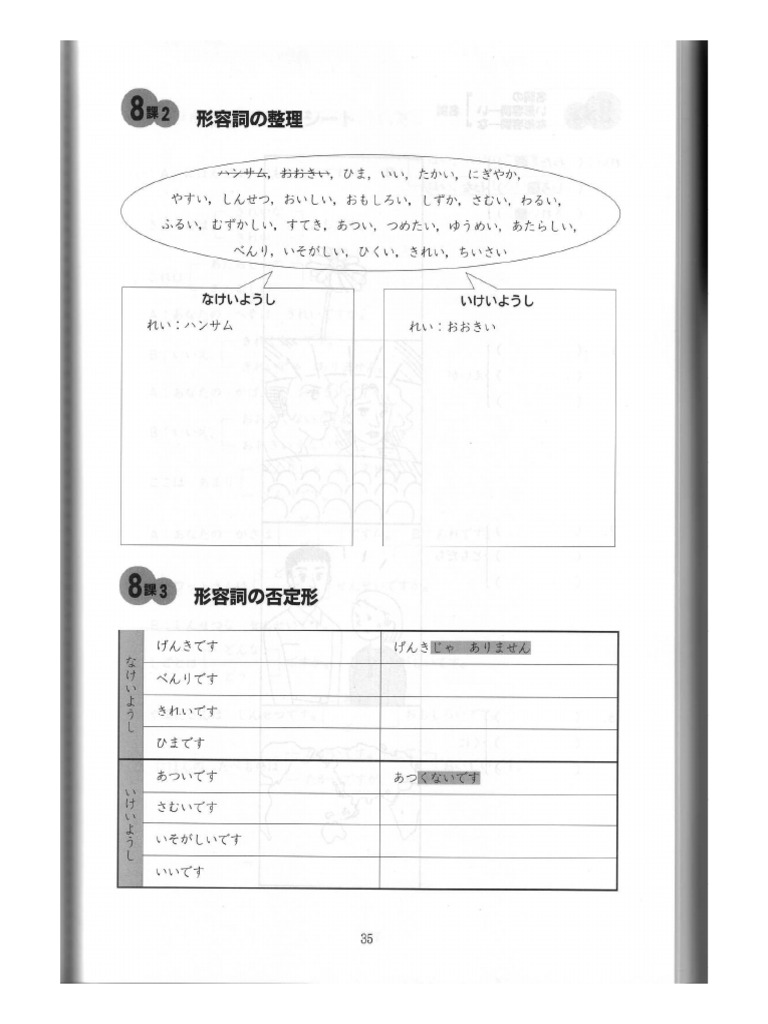 8課2 形容詞の整理
ハンサム，おおきい，ひま，いい，たかい，にぎやか，
やすい，しんせつ，おいしい，おもしろい，しずか，さむい，わるい，
ふるい，むずかしい，すてき，あつい，つめたい，ゆうめい，あたらしい，
べんり，いそがしい，ひくい，きれい，ちいさい
なけいようし
れい：ハンサム
いけいようし
れい：おおきい
8課3 形容詞の否定形
なけいようし
げんきです げんきじゃ ありません
べんりです
きれいです
ひまです
いけいようし
あついです あつくないです
さむいです
いそがしいです
いいです
35